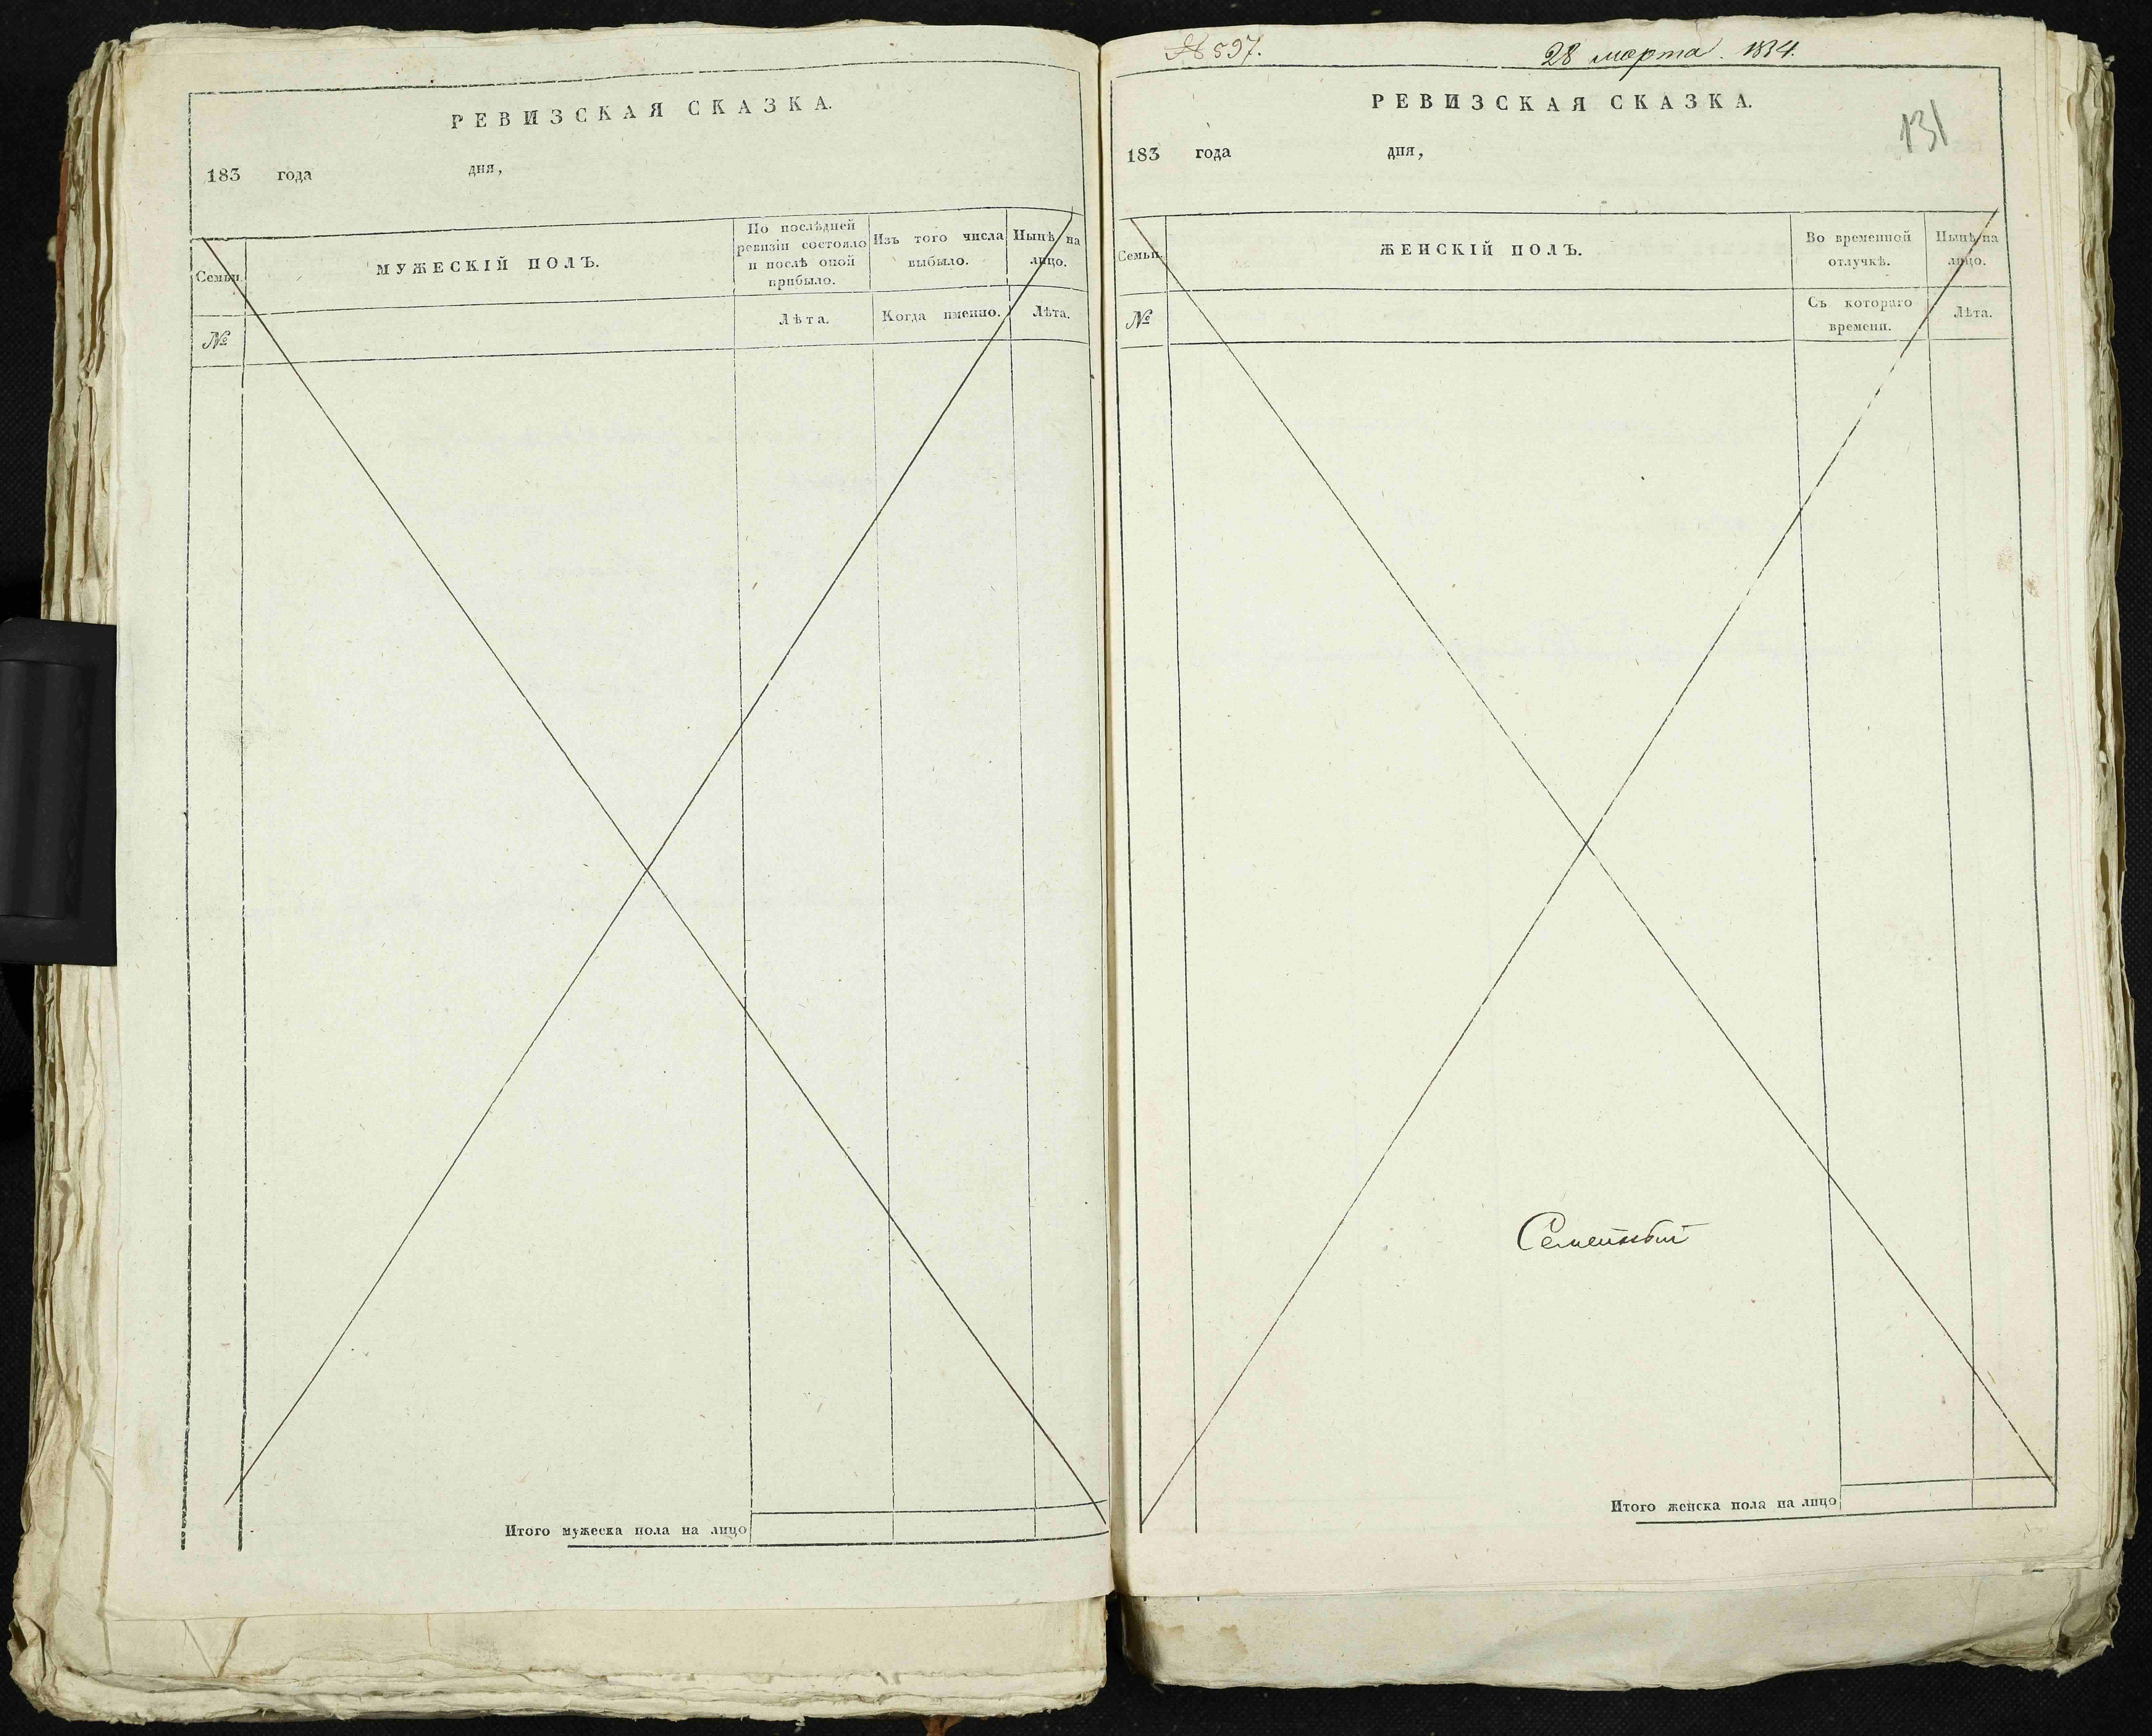 РЕВИЗСКАЯ СКАЗКА.
183 года дня,
Семьи.
МУЖЕСКІЙ ПОЛЪ.
По послѣдней
ревизіи состояло
и послѣ оной
прибыло.
Изъ того числа
выбыло.
Нынѣ на
лицо.
№
Лѣта.
Когда именно.
Лѣта.
Итого мужеска пола на лицо
№ 597.
28 марта 1834.
РЕВИЗСКАЯ СКАЗКА.
131
183 года дня,
Семьи.
ЖЕНСКІЙ ПОЛЪ.
Во временной
отлучкѣ.
Нынѣ на
лицо.
№
Съ котораго
времени.
Лѣта.
Семейный
Итого женска пола на лицо